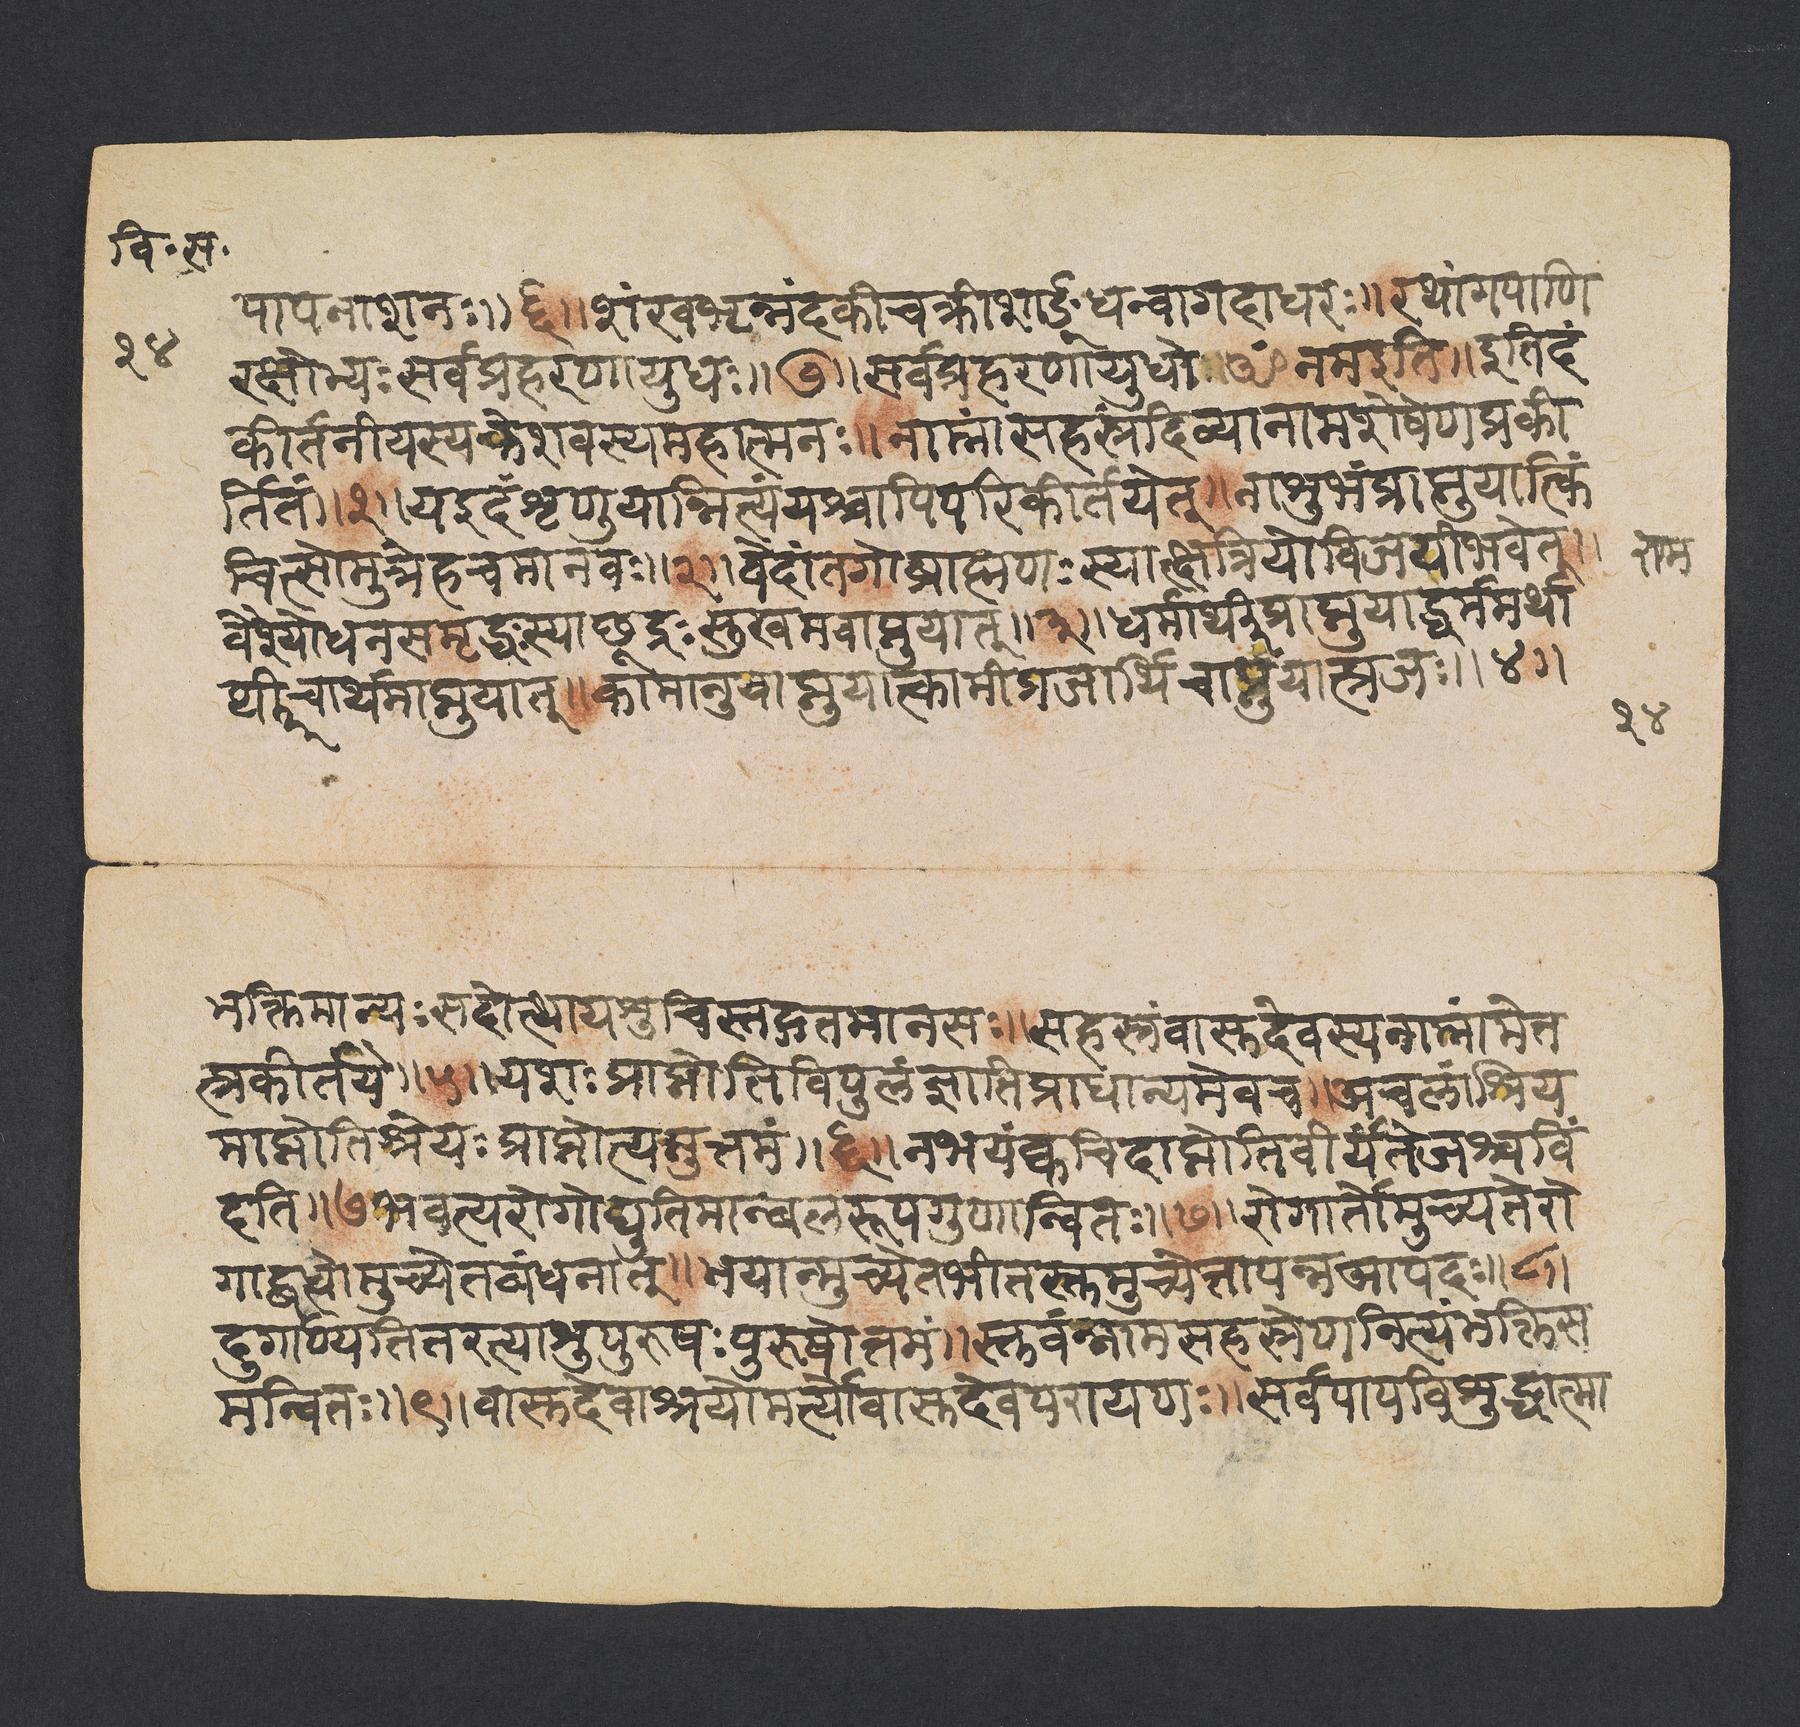 वि॰स॰
१४
पापनाशनः॥६॥शंखभृन्नंदकीचक्रीशार्ङ्गधन्वागदाधरः॥रथांगपाणि
रक्षोभ्यःसर्वप्रहरणायुधः॥७॥सर्वप्रहरणायुधों ॐ नमइति॥इतिदं
कीर्तनीयस्यकेशवस्यमहात्मनः॥नाम्नांसहस्रंदिव्यानामशेषेणप्रकी
र्तितं॥१॥यइदंशृणुयान्नित्यंयश्चापिपरिकीर्तयेत्॥नाशुभंप्राप्नुयात्किं
चित्सोमुत्रेहचमानवः॥२॥वेदांतगोब्राह्मणःस्यात्क्षत्रियोविजयीभवेत्॥
राम
वैश्योधनसमृद्धःस्याछूद्रःसुखमवाप्नुयात्॥३॥धर्मार्थीप्राप्नुयाद्धर्ममर्था
र्थीचार्थमाप्नुयात्॥कामानुवाप्नुयात्कामीप्रजार्थिचाप्नुयात्प्रजः॥४॥
१४
भक्तिमान्यःसदोत्थायशुचिस्तद्गतमानसः॥सहस्रंवासुदेवस्यनाम्नामेत
त्प्रकीर्तये॥५॥यशःप्राप्नोतिविपुलंज्ञातिप्राधान्यमेवच॥अचलांश्रिय
माप्नोतिश्रेयःप्राप्नोत्यनुत्तमं॥६॥नभयंक्वचिदाप्नोतिवीर्यंतेजश्चविं
दति॥७भवत्यरोगोद्युतिमान्बलरूपगुणान्वितः॥७॥रोगार्तोमुच्यतेरो
गाद्बद्धोमुच्येतबंधनात्॥भयान्मुच्येतभीतस्तुमुच्येतापन्नआपदः॥८॥
दुर्गाण्यतितरत्याशुपुरुषःपुरुषोत्तमं॥स्तुवंन्नामसहस्रेणनित्यंभक्तिस
मन्वितः॥९॥वासुदेवाश्रयोमर्त्योवासुदेवपरायणः॥सर्वपापविशुद्धात्मा